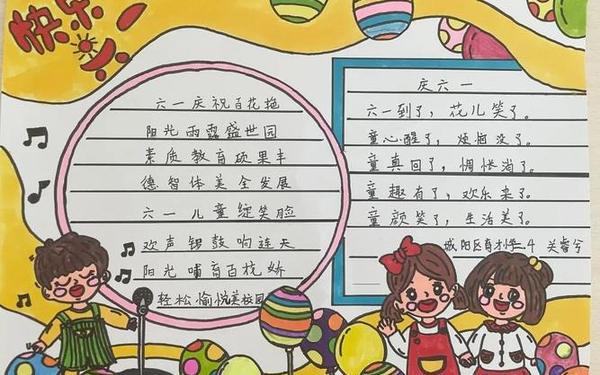 快乐六一
六一庆祝百花艳
阳光雨露盛世园
素质教育硕果丰
德智体美全发展
六一儿童绽笑脸
欢声锣鼓响连天
阳光哺育百枝娇
轻松愉悦美校园
庆六一
六一到了，花儿笑了。
童心醒了，烦恼没了。
童真回了，惆怅消了。
童趣有了，欢乐来了。
童颜笑了，生活美了。
城阳区育才 二.4 关睿兮